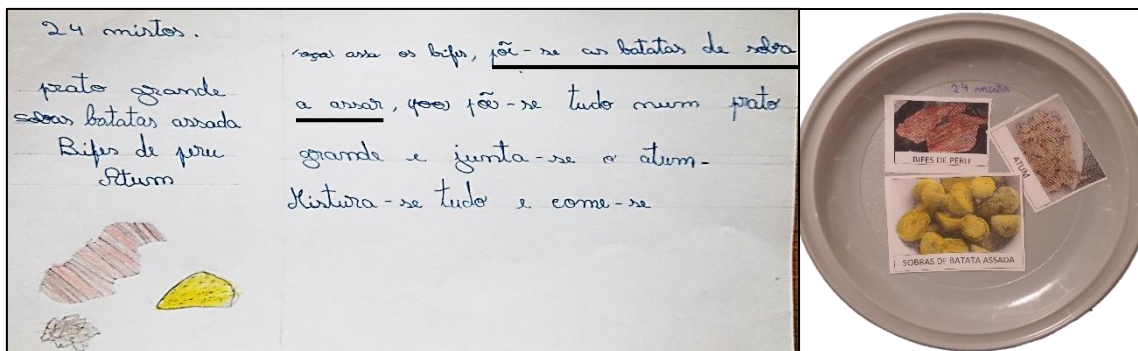 24 mistos.
prato grande
batatas assada
Bifes de peru
Atum
assa os bifes, põi-se as batatas de sobra
a assar, põi-se tudo num prato
grande e junta-se o atum-
Mistura-se tudo e come-se
24 mistos
BIFES DE PERU
ATUM
SOBRAS DE BATATA ASSADA